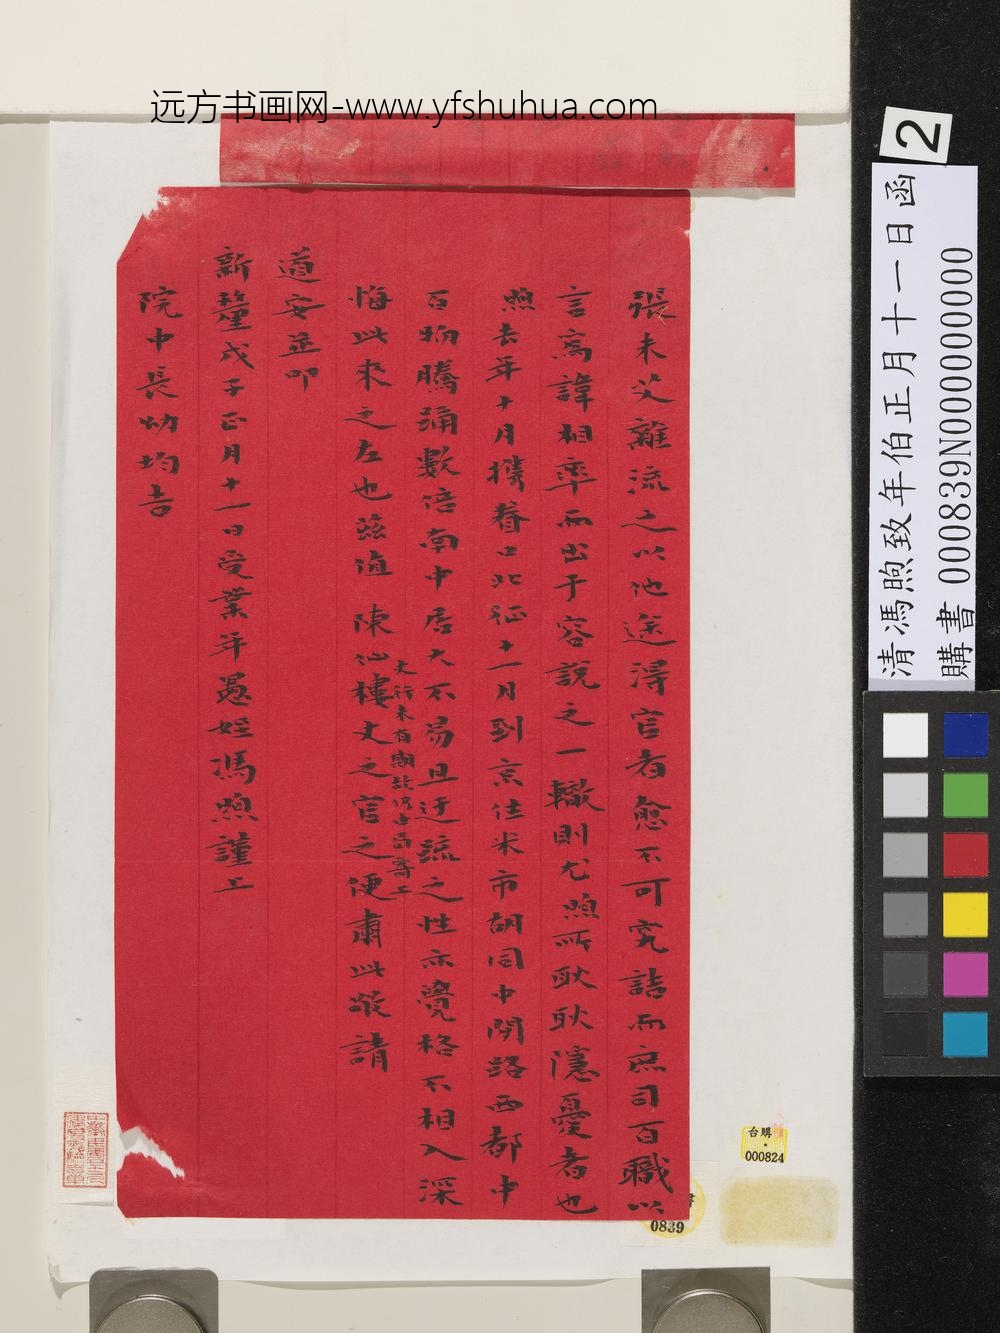 远方书画网-www.yfshuhua.com
張未父雜流之以他途得官者愈不可究詰而庶司百職以
言為諱相率而出于容說之一轍則尤煦所耿耿隱憂者也
煦去年十月攜眷口北征十一月到京住米市胡同中閒路西都中
百物騰踊數倍南中居大不易且迂疏之性亦覺格不相入深
悔此來之左也茲值 陳仙樓丈之官之便肅此敬請
丈行未有期故仍由局寄上
道安並叩
新釐戊子正月十一日受業年愚姪馮煦謹上
院中長幼均吉
2
清馮煦致年伯正月十一日函
購書 000839N000000000
台購
000824
0839